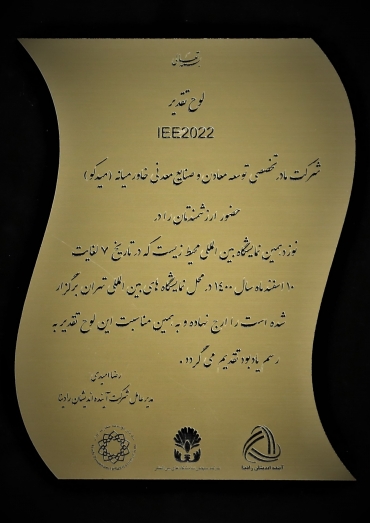 لوح تقدیر
IEE2022
شرکت مادر تخصصی توسعه معادن و صنایع معدنی خاورمیانه (میدکو)
حضور ارزشمندتان را در
نوزدهمین نمایشگاه بین المللی محیط زیست که در تاریخ ۷ لغایت
۱۰ اسفند ماه سال ۱۴۰۰ در محل نمایشگاه های بین المللی تهران برگزار
شده است را ارج نهاده و به همین مناسبت این لوح تقدیر به
رسم یادبود تقدیم می گردد .
رضا امیدی
مدیر عامل شرکت آینده اندیشان رادینا
آینده اندیشان رادینا